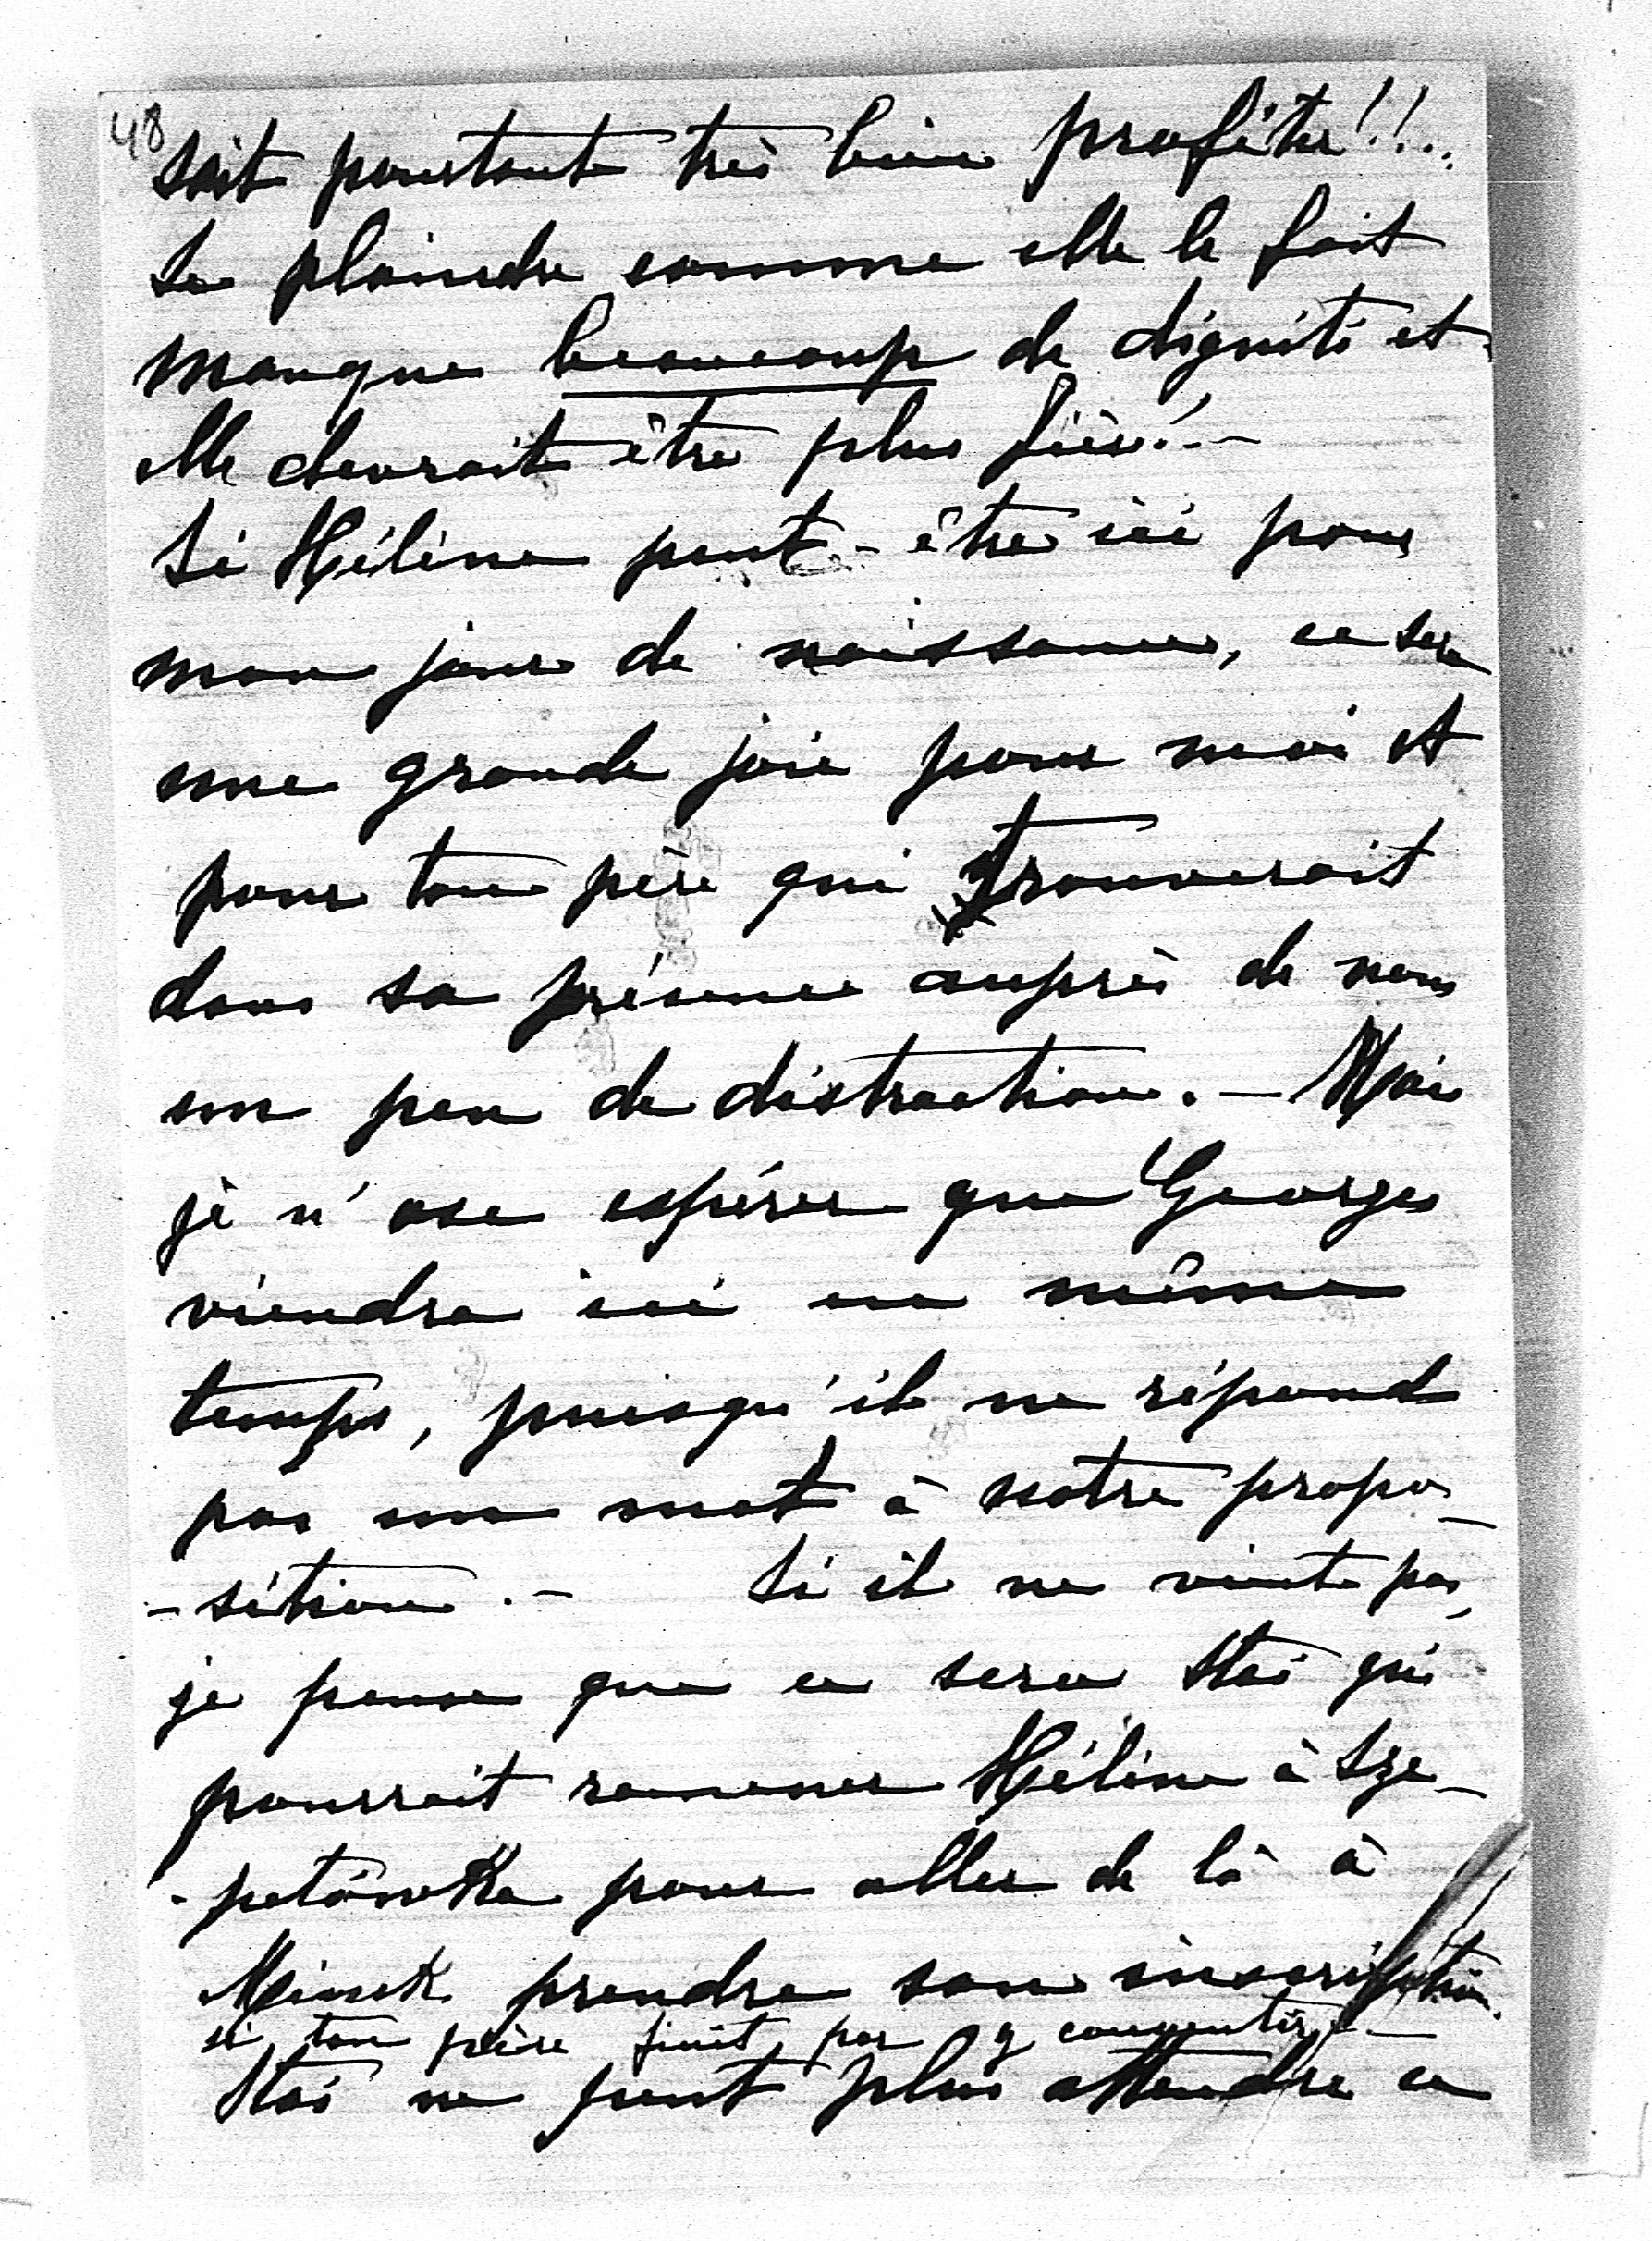 48
sait pourtant très bien profiter!!..
Se plaindre comme elle le fait
manque beaucoup de dignité et
elle devrait être plus fière! –
Si Hélène peut-être ici pour
mon jour de naissance, ce sera
une grande joie pour moi et
pour ton père qui trouverait
dans sa présence auprès de nous
un peu de distraction. – Mais
je n'ose espérer que Georges
viendra ici en même
temps, puisqu'il ne répond
pas un mot à notre propo-
-sition. – Si il ne vient pas,
je pense que ce sera Stas qui
pourrait ramener Hélène à Sze-
-petówka pour aller de là à
Minsk prendre son inscription
si ton père finit par y consentir. –
Stas ne peut plus attendre ce